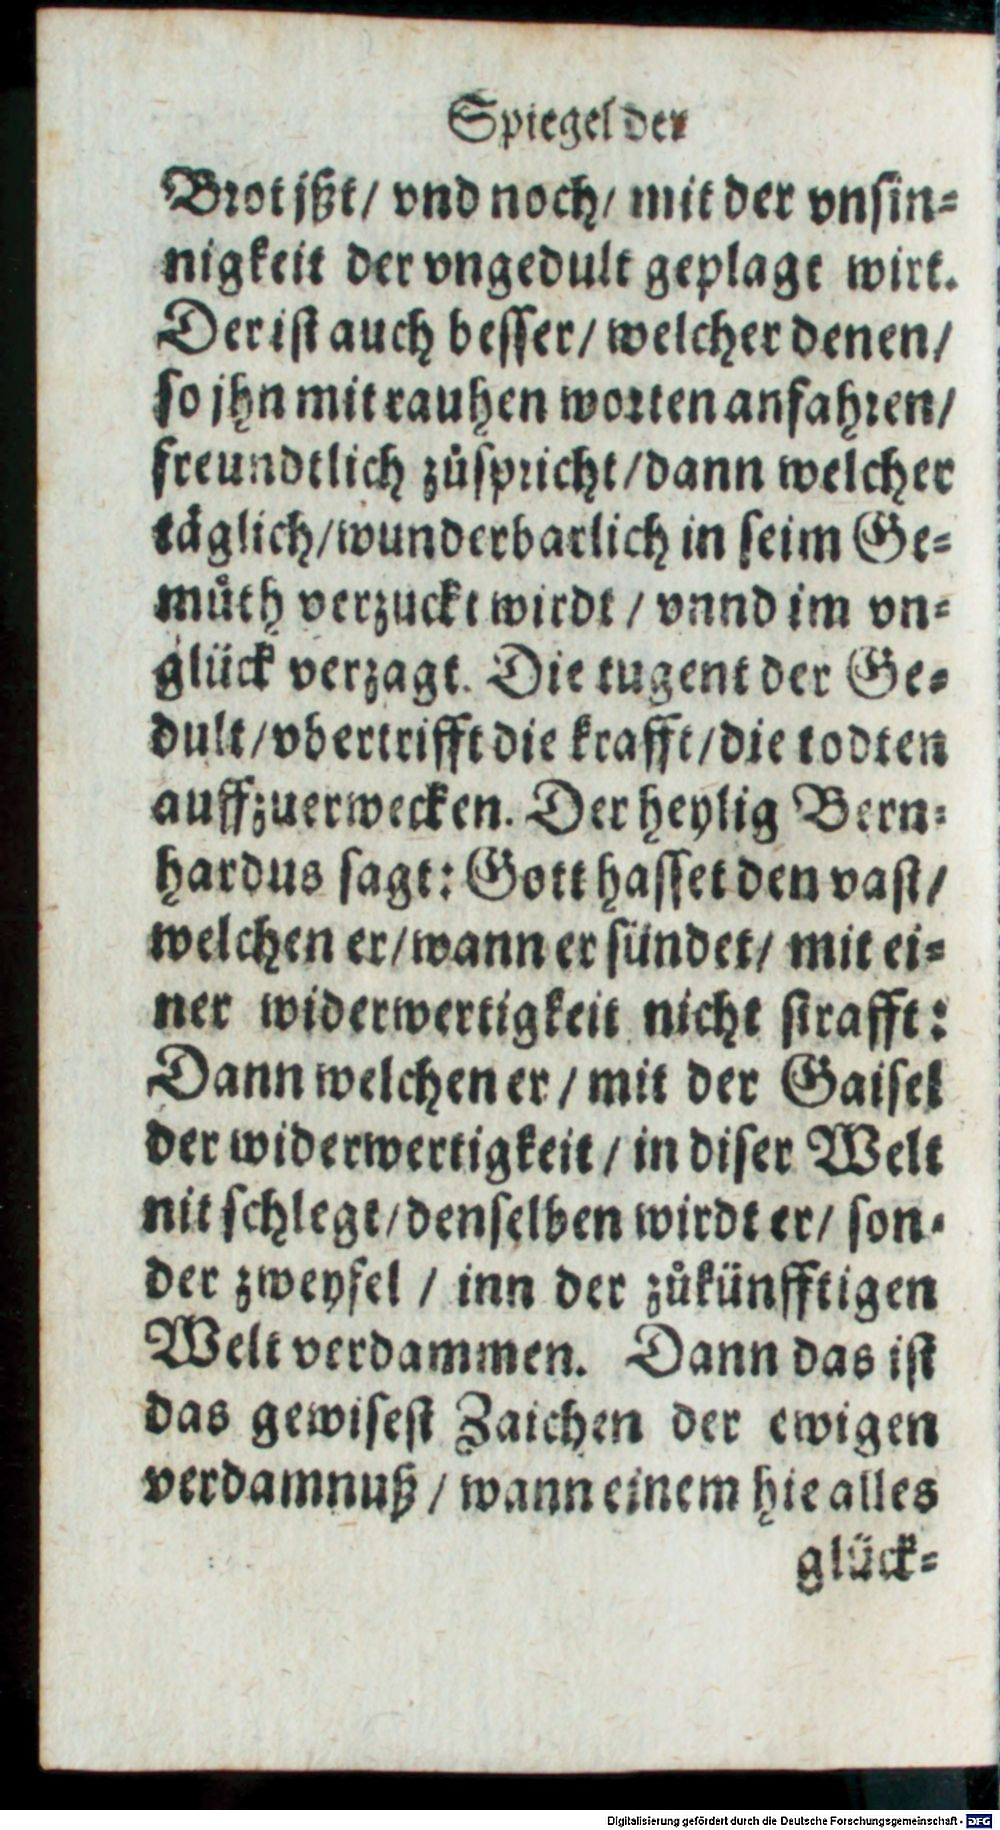 Spiegel der
Brot jßt/ vnd noch/ mit der vnsin-
nigkeit der vngedult geplagt wirt.
Der ist auch besser/ welcher denen/
so jhn mit rauhen worten anfahren/
freundtlich zůspricht/ dann welcher
täglich/ wunderbarlich in seim Ge-
můth verzuckt wirdt / vnnd im vn-
glück verzagt. Die tugent der Ge-
dult/ vbertrifft die krafft/ die todten
auffzuerwecken. Der heylig Bern-
hardus sagt: Gott hasset den vast/
welchen er/ wann er sündet/ mit ei-
ner widerwertigkeit nicht strafft:
Dann welchen er / mit der Gaisel
der widerwertigkeit / in diser Welt
nit schlegt/ denselben wirdt er/ son-
der zweyfel / inn der zůkünfftigen
Welt verdammen. Dann das ist
das gewisest Zaichen der ewigen
verdamnuß / wann einem hie alles
glück-
Digitalisierung gefördert durch die Deutsche Forschungsgemeinschaft - DFG